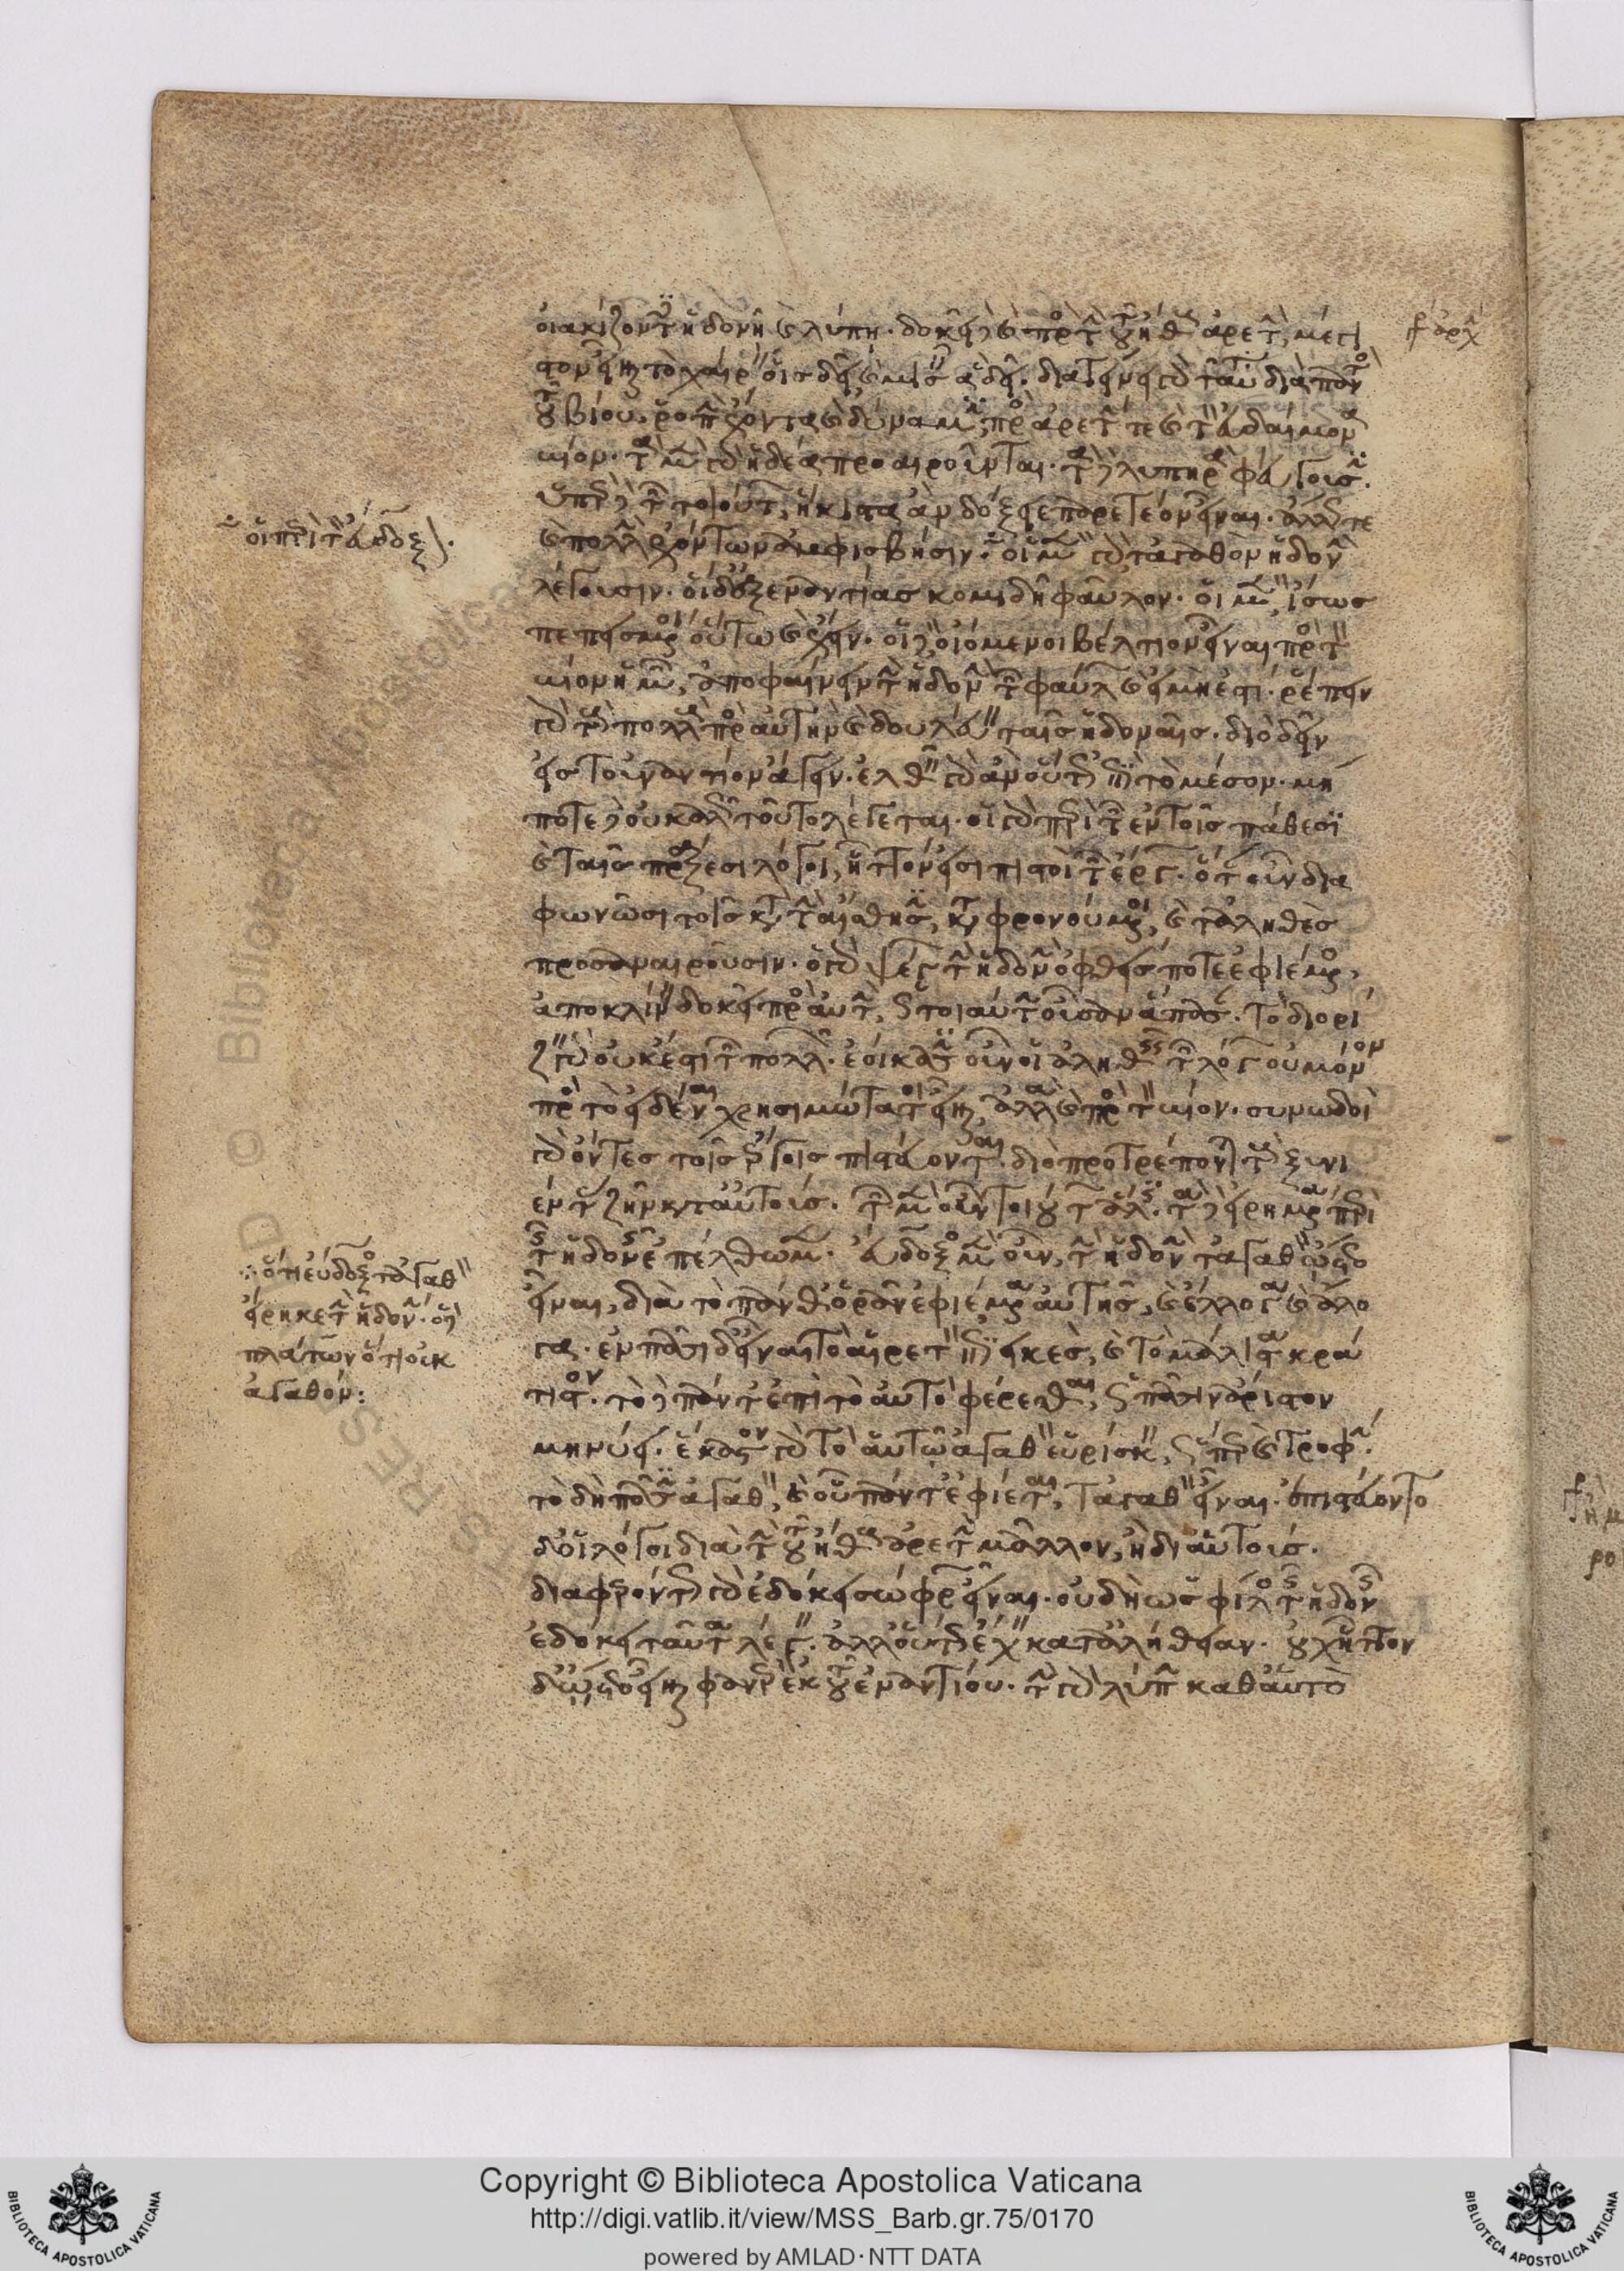 οἰακίζοντες ἡδονῇ καὶ λύπῃ. δοκεῖ δὲ καὶ πρὸς τὴν τοῦ ἤθους ἀρετὴν μέγι
στον εἶναι τὸ χαίρειν οἷς δεῖ καὶ μισεῖν ἃ δεῖ. διατείνει γὰρ ταῦτα διὰ παντὸς
τοῦ βίου, ῥοπὴν ἔχοντα καὶ δύναμιν πρὸς ἀρετήν τε καὶ τὸν εὐδαίμονα
βίον. τὰ μὲν γὰρ ἡδέα προαιροῦνται. τὰ δὲ λυπηρὰ φεύγουσιν.
ὑπὲρ δὲ τῶν τοιούτων, ἥκιστα ἂν δόξειε παρετέον εἶναι. ἄλλως τε
καὶ πολλὴν ἐχόντων ἀμφισβήτησιν. οἱ μὲν γὰρ τἀγαθὸν ἡδονὴν
λέγουσιν. οἱ δ' ἐξεναντίας κομιδῆ φαῦλον. οἱ μὲν, ἴσως
πεπεισμένοι οὕτω καὶ ἔχειν. οἱ δὲ, οἰόμενοι βέλτιον εἶναι πρὸς τὸν
βίον ἡμῶν, ἀποφαίνειν τὴν ἡδονὴν τῶν φαύλων καὶ εἰ μή ἐστι. ῥέπειν
γὰρ τοὺς πολλοὺς πρὸς αὐτὴν καὶ δουλεύειν ταῖς ἡδοναῖς. διὸ δεῖν
εἰς τοὐναντίον ἄγειν. ἐλθεῖν γὰρ ἂν οὕτως ἐπὶ τὸ μέσον. μή
ποτε δὲ οὐ καλῶς τοῦτο λέγεται. οἱ γὰρ περὶ τῶν ἐν τοῖς πάθεσι
καὶ ταῖς πράξεσι λόγοι, ἧττόν εἰσι πιστοὶ τῶν ἔργων. ὅταν οὖν δια
φωνῶσι τοῖς κατὰ τὴν αἴσθησιν, καταφρονούμενοι, καὶ τἀληθὲς
προσαναιροῦσιν. ὁ γὰρ ψέγων τὴν ἡδονὴν ὀφθείς ποτε ἐφιέμενος,
ἀποκλίνειν δοκεῖ πρὸς αὐτὴν, ὡς τοιαύτην οὖσαν ἅπασαν. τὸ διορί
ζειν γὰρ οὐκ ἔστι τῶν πολλῶν. ἐοίκασιν οὖν οἱ ἀληθεῖς τῶν λόγων οὐ μόνον
πρὸς τὸ εἰδέναι χρησιμώτατοι εἶναι, ἀλλὰ καὶ πρὸς τὸν βίον. συνῳδοὶ
γὰρ ὄντες τοῖς ἔργοις πιστεύονται. διὸ προτρέπονται τοὺς ξυνι
έντας ζῆν κατ' αὐτούς. τῶν μὲν οὖν τοιούτων ἅλις. τὰ δὲ εἰρημένα περὶ
τῆς ἡδονῆς ἐπέλθωμεν. εὔδοξος μὲν οὖν, τὴν ἡδονὴν τἀγαθὸν ᾤετο
εἶναι, διὰ τὸ πάνθ' ὁρᾶν ἐφιέμενα αὐτῆς, καὶ ἔλλογα καὶ ἄλο
γα. ἐν πᾶσι δ' εἶναι τὸ αἱρετὸν ἐπιεικὲς, καὶ τὸ μάλιστα κρά
τιστον. τὸ δὲ πάντ' ἐπὶ τὸ αὐτὸ φέρεσθαι, ὡς πᾶσιν ἄριστον
μηνύει. ἕκαστον γὰρ τὸ αὑτῷ ἀγαθὸν εὑρίσκειν, ὥσπερ καὶ τροφήν.
τὸ δὴ πᾶσιν ἀγαθὸν, καὶ οὗ πάντ' ἐφίεται, τἀγαθὸν εἶναι. ἐπιστεύοντο
δ' οἱ λόγοι διὰ τὴν τοῦ ἤθους ἀρετὴν μᾶλλον, ἢ δι' αὑτούς.
διαφερόντως γὰρ ἐδόκει σώφρων εἶναι. οὐ δὴ ὡς φίλος τῆς ἡδονῆς
ἐδόκει ταῦτα λέγειν. ἀλλ' οὕτως ἔχειν κατ' ἀλήθειαν. οὐχ ἧττον
δ' ᾤετο εἶναι φανερὸν ἐκ τοῦ ἐναντίου. τὴν γὰρ λύπην καθ' αὑτὸ
οἱ περὶ τὸν εὔδοξον.
ὅτι εὔδοξος τἀγαθὸν
εἴρηκε τὴν ἡδονήν. ὁ δὲ
πλάτων ὅτι οὐκ
ἀγαθόν:
Copyright © Biblioteca Apostolica Vaticana
http://digi.vatlib.it/view/MSS_Barb.gr.75/0170
powered by AMLAD·NTT DATA
BIBLIOTECA APOSTOLICA VATICANA
BIBLIOTECA APOSTOLICA VATICANA